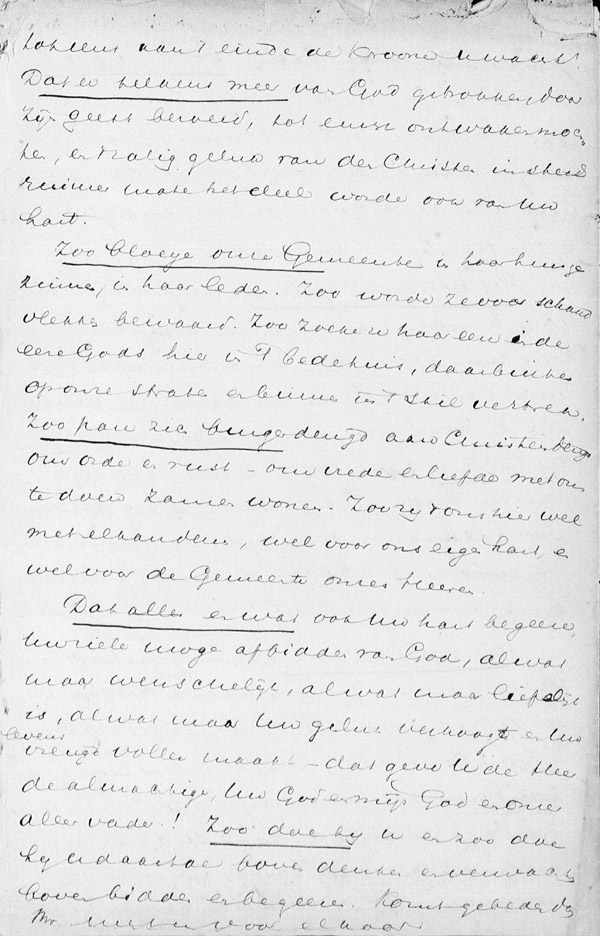 tot eens aan 't einde de kroone u wacht!
Dat er telkens meer van God getrokken, door
Zijn geest bewerkt, tot ernst ontwaken moch-
ten, en zalig geluk van den Christen in steeds
ruimer mate het deel worde ook van Uw
hart.
Zoo bloeye onze Gemeente in haar huisge-
zinnen, in haar leden. Zoo worde ze voor schand
vlekken bewaard. Zoo zoeke in haar een ieder
eere Gods hier in 't bedehuis, daarbuiten
op onze straten en binnen in 't stil vertrek.
Zoo paare zich burgerdeugd aan Christendeugd
om orde en rust - om vrede en liefde met ons
te doen zamen wonen. Zoo zij 't ons hier wel
met elkanderen, wel voor ons eigen hart, en
wel voor de Gemeente onzes Heeren.
Dat alles en wat ook Uw hart begeere,
Uw ziele moge afbidden van God, al wat
maar wenschelijk, al wat maar liefelijk
is, al wat maar Uw geluk verhoogt en Uw
levens
vreugd voller maakt - dat geve U de Heer
de almachtige, Uw God en mijn God en onzer
aller vader! Zoo doe hij U en zoo doe
hij U daartoe boven denken en verwachten
boven bidden en begeeren. Komt gebeden
voor elkaar